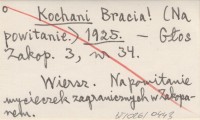 Kochani Bracia! (Na
powitanie.) 1925. — Głos
Zakop. 3, nr 34.
Wiersz. Napowitanie
wycieczek zagranicznych w Zakopa-
nem.